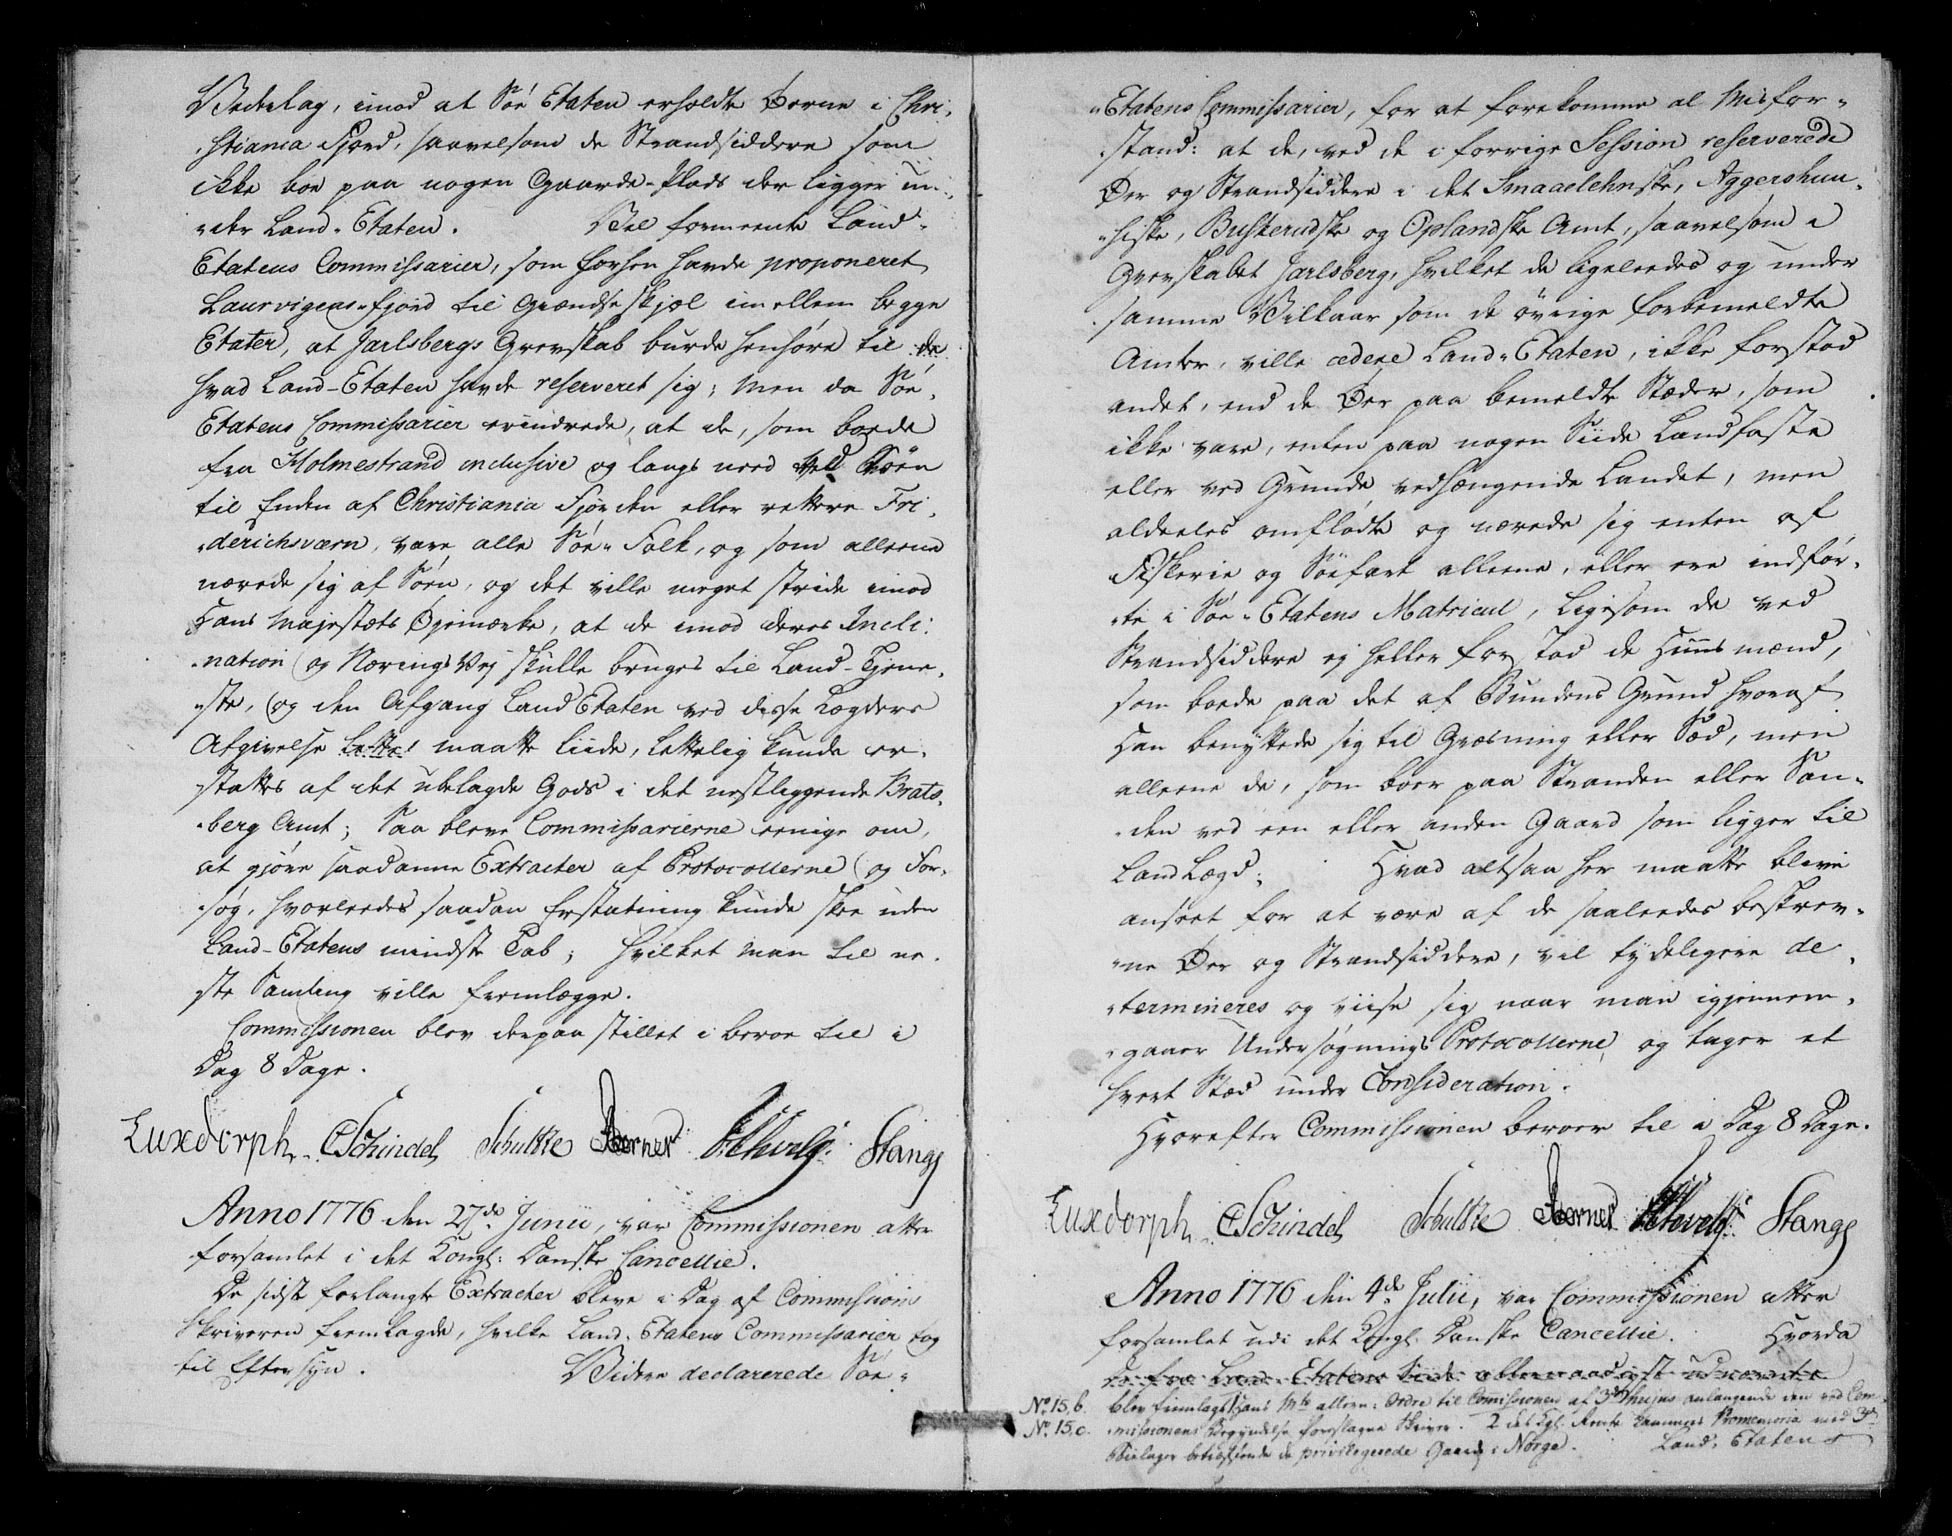 Vederlag, imod at Søe Etaten erholdte Øerne i Chri-
stiania Fjord, saavelsom de Strandsiddere som
ikke boe paa nogen Gaards-Plads der ligger un-
der Land-Etaten. Vel formeente Land-
Etatens Commissarier, som forhen havde proponeret
Laurvigens-fjord til Grændse Skjæl imellem begge
Etater, at Jarlsbergs Grevskab burde henhøre til de
hvad Land-Etaten havde reserveret sig; Men da Søe
Etatens Commissarier erindrede, at de, som boede
fra Holmestrand inclusive og langs need ved Søen
til Enden af Christiania Fjorden eller rettere Fri-
derichsværn, vare alle Søe-Folk, og som alleene
nærede sig af Søen, og det ville meget stride imod
Hans Majestæts Øjemærke, at de imod deres Incli-
nation og Nærings Vej skulle bruges til Land-Tjene-
ste, og den Afgang Land Etaten ved disse Lægders
Afgivelse maatte liide, lettelig kunde er-
stattes af det ulagde Gods i det nestliggende Brats-
berg Amt; Saa bleve Commissarierne eenige om,
at gjøre saadanne Extracter af Protocollerne og For-
søg, hvorleedes saadan Erstatning kunde skee uden
Land-Etatens mindste Tab; hvilket man til ne-
ste Samling ville fremlægge.
Commissionen blev derpaa stillet i beroe til i
Dag 8 Dage.
Luxdorph CSchindel Schultze Berner Stange
Anno 1776 den 27de Junii, var Commissionen atter
forsamlet i det Kongl: Danske Cancellie.
De sidst forlangte Extracter bleve i Dag af Commissions
Skriveren fremlagde, hvilke Land-Etatens Commissarier tog
til Eftersyn. Videre declarerede Søe-
Etatens Commissarier, for at forekomme al Misfor-
stand: at de, ved de i forrige Session reserverede
Øer og Strandsiddere i det Smaalehnske, Aggershuu-
siske, Buskerudske og Oplandske Amt, saavelsom i
Grevskabet Jarlsberg, hvilket de ligeleedes og under
samme Vilkaar som de øvrige forbemeldte
Amter, ville cedere Land-Etaten, ikke forstod
andet, end de Øer paa bemeldte Stæder, som
ikke vare, enten paa nogen Siide Landfaste
eller ved Grunde vedhængende Landet, men
aldeeles omflødte og nærede sig enten af
Fiskerie og Søefart alleene, eller ere indfør-
te i Søe-Etatens Matricul, ligesom de ved
Strandsiddere ej heller forstod de Huusmænd,
som boede paa det af Bundens Grund hvoraf
Han benyttede sig til Græsning eller Sæd, men
alleene de, som boer paa Stranden eller San-
den ved een eller anden Gaard som ligger til
Land Lægd. Hvad altsaa her maatte blive
anseet for at være af de saaleedes beskrev-
ne Øer og Strandsiddere, vil tydeligere de-
termineres og viise sig naar man igjennem-
gaaer Undersøgnings Protocollerne og tager et
hvert Stæd under Consideration.
Hvorefter Commissionen beroer til i Dag 8 Dage.
Luxdorph CSchindel Schultze Berner Stange
Anno 1776 den 4de Julii, var Commissionen atter
forsamlet udi det Kongl. Danske Cancellie. Hvorda
de fra Land-Etatens Siide allernaadigst udnævnte
No 15, b. blev fremlagt Hans Mts allern: Ordre til Comissionen af 3die hujus anlangende den ved Com-
No. 15, c. missionens Begyndelse foreslagne Skriver. 2 det Kgl. Rente Cammers Promemoria med 3de
Bielager betræffende de privilegerede Gaarde i Norge. Land-Etatens